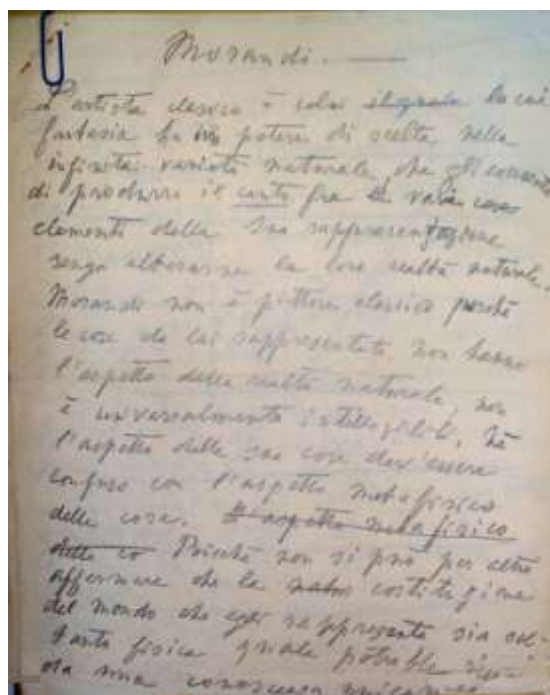 Morandi.
L'artista classico è colui la cui
fantasia ha un potere di scelta nella
infinita varietà naturale, che gli consente
di produrre il canto fra le varie cose
elementi della sua rappresentazione
senza alterarne la loro realtà naturale.
Morandi non è pittore classico perché
le cose da lui rappresentate non hanno
l'aspetto della realtà naturale, non
è universalmente intelligibile. Né
l'aspetto delle sue cose dev'essere
confuso con l'aspetto metafisico
delle cose. L'aspetto metafisico
delle co Poiché non si può per altro
affermare che la costituzione
del mondo che egli rappresenta sia sol-
tanto fisica quale potrebbe
da una conoscenza